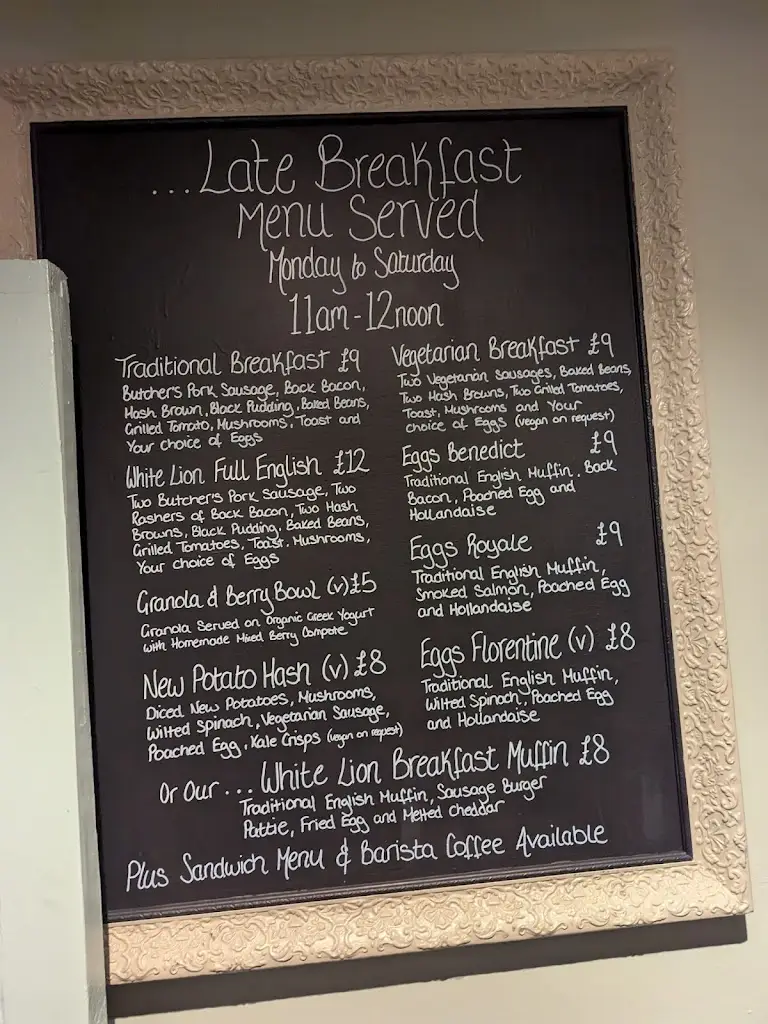 ...Late Breakfast
Menu Served
Monday to Saturday
11am-12noon
Traditional Breakfast £9
Butcher's Pork Sausage, Back Bacon,
Hash Brown, Black Pudding, Baked Beans,
Grilled Tomato, Mushrooms, Toast and
Your choice of Eggs
White Lion Full English £12
Two Butcher's Pork Sausage, Two
Rashers of Back Bacon, Two Hash
Browns, Black Pudding, Baked Beans,
Grilled Tomatoes, Toast, Mushrooms,
Your choice of Eggs
Granola & Berry Bowl (v) £5
Granola Served on Organic Greek Yogurt
with Homemade Mixed Berry Compote
New Potato Hash (v) £8
Diced New Potatoes, Mushrooms,
Wilted Spinach, Vegetarian Sausage,
Poached Egg, Kale Crisps (vegan on request)
Vegetarian Breakfast £9
Two Vegetarian Sausages, Baked Beans,
Two Hash Browns, Two Grilled Tomatoes,
Toast, Mushrooms and Your
choice of Eggs (vegan on request)
Eggs Benedict £9
Traditional English Muffin, Back
Bacon, Poached Egg and
Hollandaise
Eggs Royale £9
Traditional English Muffin,
Smoked Salmon, Poached Egg
and Hollandaise
Eggs Florentine (v) £8
Traditional English Muffin,
Wilted Spinach, Poached Egg
and Hollandaise
Or Our ... White Lion Breakfast Muffin £8
Traditional English Muffin, Sausage Burger
Pattie, Fried Egg and Melted Cheddar
Plus Sandwich Menu & Barista Coffee Available